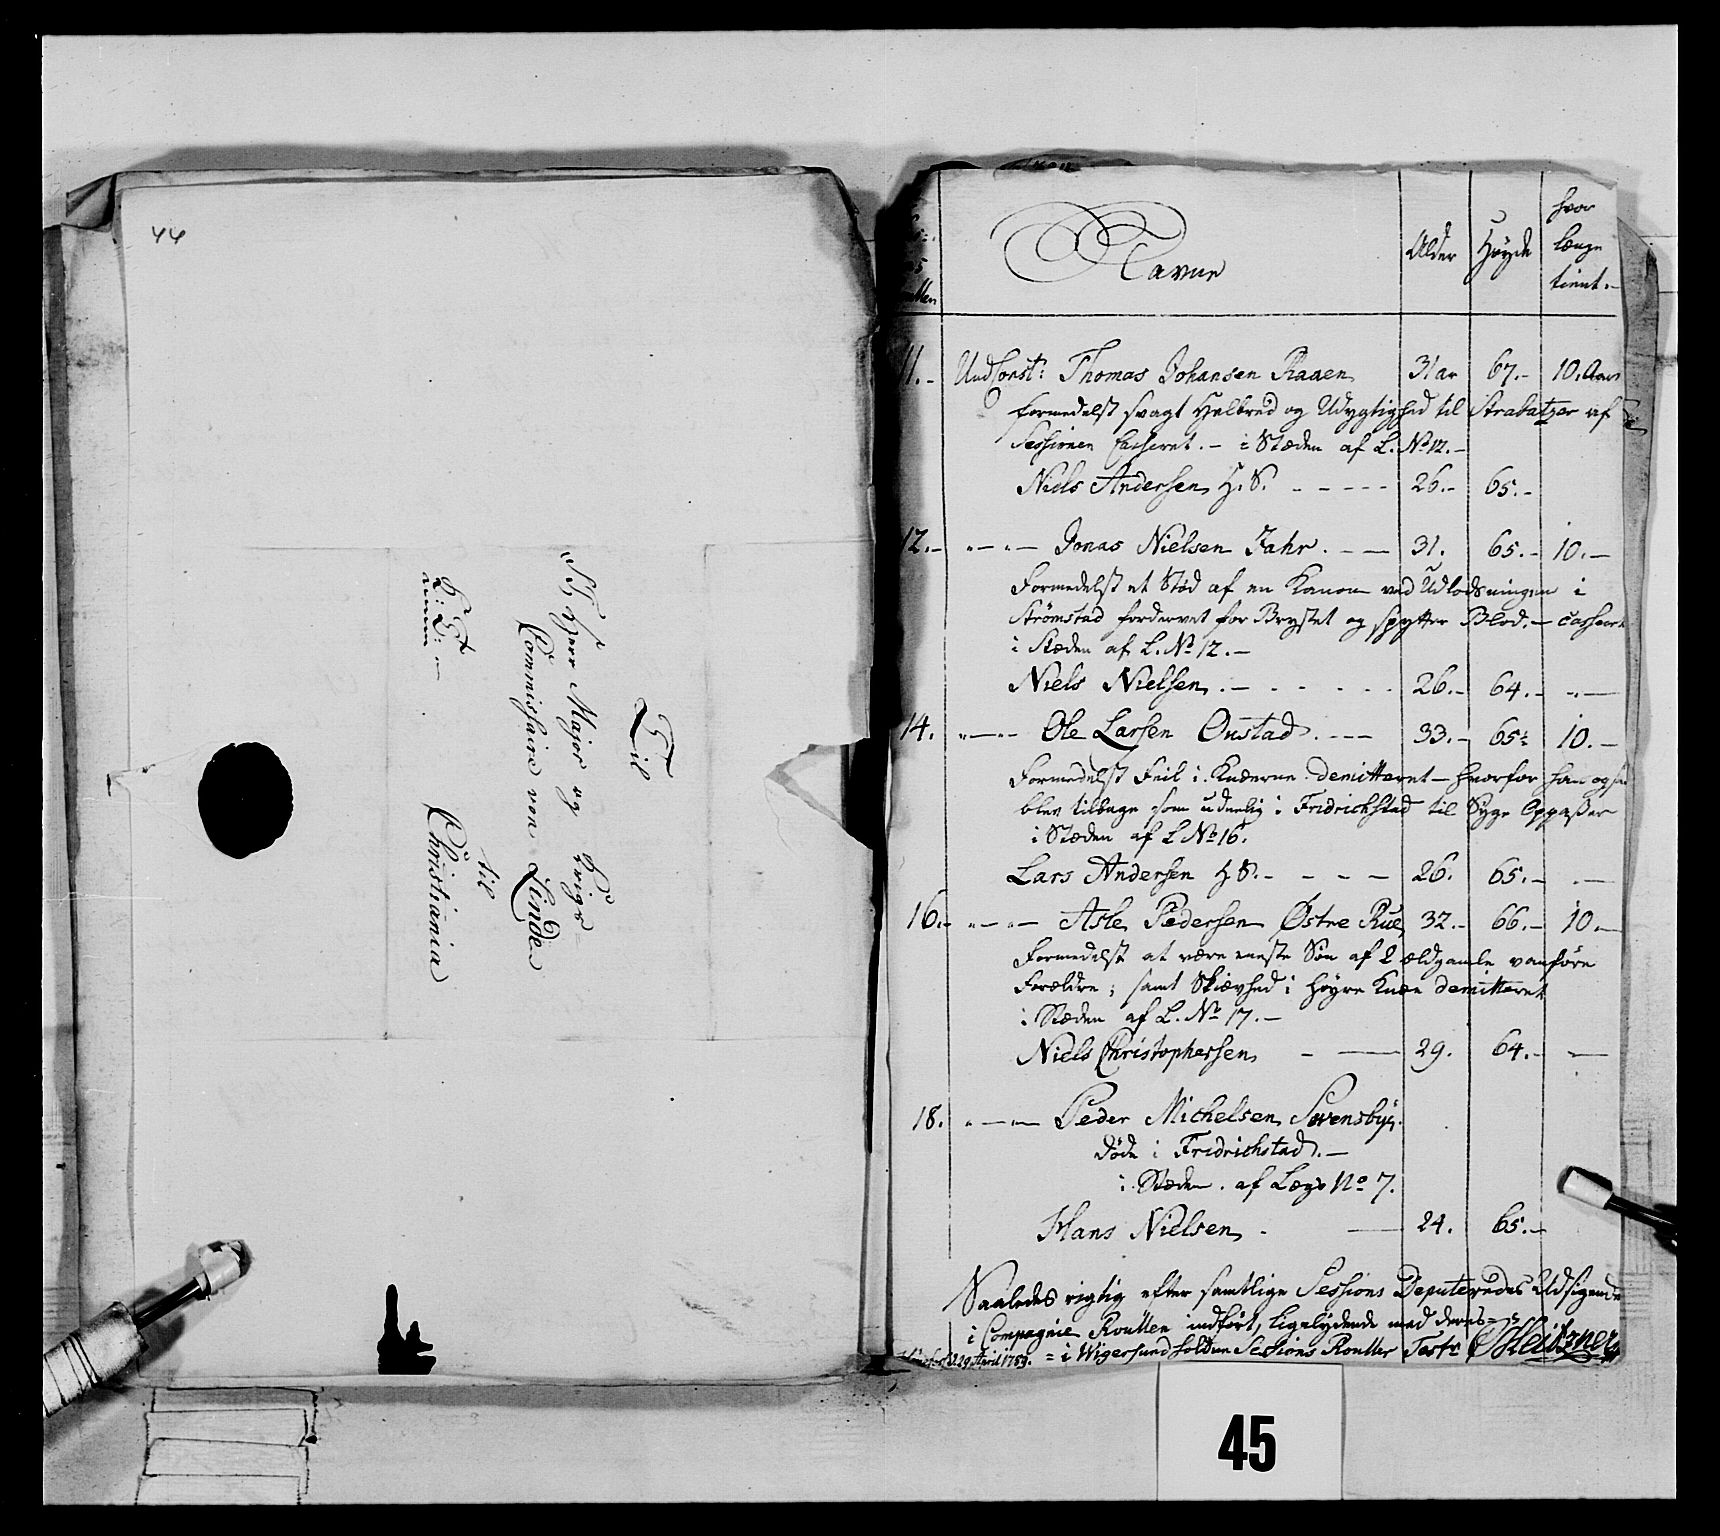 44
Til
S. T. Herr Major og Krigs-
Commissaire von Linde
til
Christiania
Navne
Alder
Høyde
hvor
længe
tient.-
11.- Und Const: Thomas Johansen Raaen 31 ar 67.- 10. Aar
formedelst svagt Helbred og Udygtighed til Strabatzer af
Sessionen Casseret.- i Stæden af L. No 12.-
Niels Andersen H. S. ----- 26.- 65.-
12.- -"- Jonas Nielsen Jahr. -- 31. 65.- 10.-
Formedelst et Stød af en Kanon ved Udlodsningen i
Strømstad fordervet for Brystet og spytter Blod.- Casseret
i Stæden af L. No 12.-
Niels Nielsen. - - - - - 26.- 64.- -.-
14. -"- Ole Larsen Oustad. --- 33.- 65½ 10.-
Formedelst Feil i Knæerne demitteret - hvorfor han og
blev tilbage som udenlig i Fridrichstad til Syge Oppasser
i Stæden af L No 16.
Lars Andersen H S. - - - - 26. 65.- .-
16.- -"- Asle Pedersen Østre Rue 32.- 66.- 10.-
Formedelst at være eneste Søn af 2 ældgamle vanføre
Forældre; samt Skiævhed i høyre Knæe demitteret
i Stæden af L. No 17.-
Niels Christophersen - -- 29. 64.- -
18. -"- Peder Michelsen Svensbye
døde i Fridrichstad.-
i Stæden af Lægs No 7.
Hans Nielsen - - 24. 65.-
Saaledes rigtig efter samtlige Sessions Deputeredes Udsigende
i Compagnie Roullen indført, ligelydende med deres
29 April 1759. = i Wigersund holdne Sessions Rouller Testr Heitzner
45